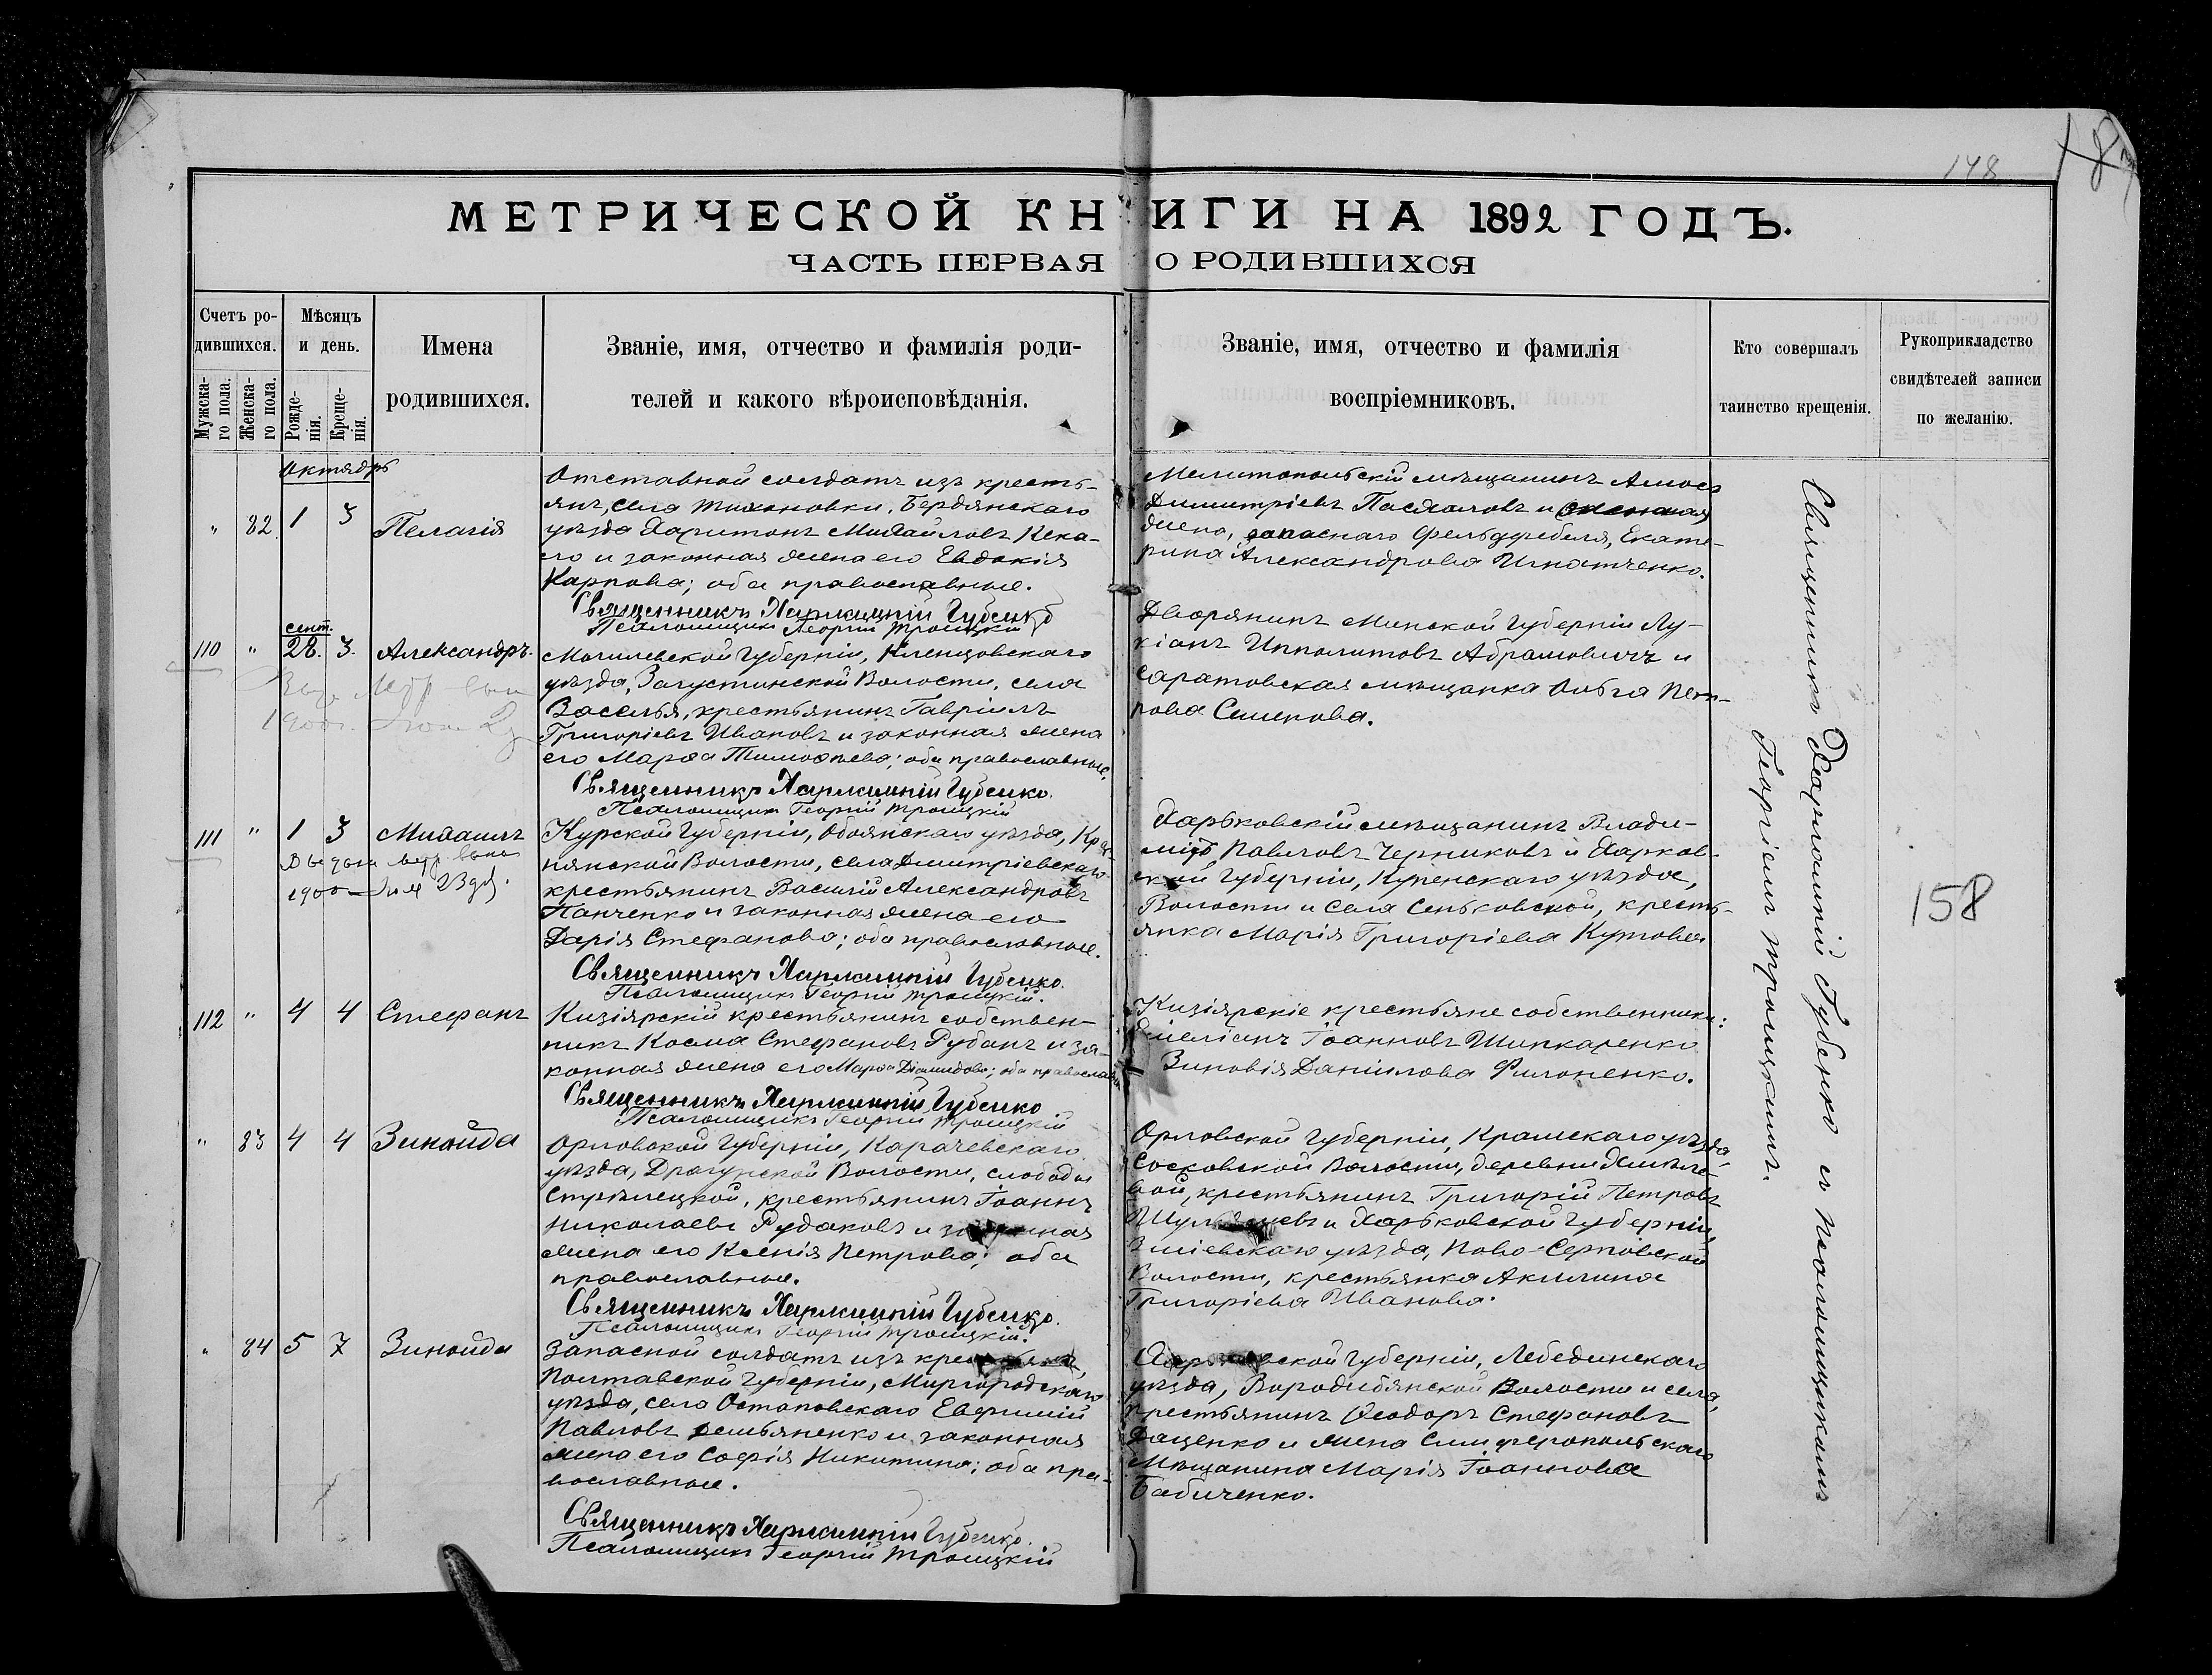 148
МЕТРИЧЕСКОЙ КНИГИ НА 1892 ГОДЪ.
ЧАСТЬ ПЕРВАЯ О РОДИВШИХСЯ
Счетъ ро-
дившихся.
Мужска-
го пола.
Женска-
го пола.
Мѣсяцъ
и день.
Рожде-
нія.
Креще-
нія.
Имена
родившихся.
Званіе, имя, отчество и фамилія роди-
телей и какого вѣроисповѣданія.
Званіе, имя, отчество и фамилія
воспріемниковъ.
Кто совершалъ
таинство крещенія.
Рукоприкладство
свидѣтелей записи
по желанію.
Октябрь
" 82 1 3 Пелагія
Отставной солдатъ изъ кресть-
янъ, села Тихоновки, Бердянскаго
уѣзда Харитонъ Михайловъ Кека-
ло и законная жена его Евдокія
Карпова; оба православные.
Священникъ Харлампій Губенко
Псаломщикъ Георгій Троицкій
Мелитопольскій мѣщанинъ Амосъ
Димитріевъ Пасхаловъ и
жена, запаснаго Фельдфебеля, Екате-
рина Александрова Игнатченко.
сент.
110 " 28. 3. Александръ.
Могилевской Губерніи, Климцовскаго
уѣзда, Волости, села
Заселья, крестьянинъ Гавріилъ
Григоріевъ Ивановъ и законная жена
его Марѳа Тимоѳеева; оба православные.
Священникъ Харлампій Губенко.
Псаломщикъ Георгій Троицкій
Дворянинъ Минской Губерніи Лу-
кіанъ Ипполитовъ Абрамовичъ и
Саратовская мѣщанка Ольга Пет-
рова Семенова.
1900
111 " 1 3 Михаилъ
Курской Губерніи, Обоянскаго уѣзда, Крас-
нянской Волости, села Дмитріевскаго
крестьянинъ Василій Александровъ
Панченко и законная жена его
Дарія Стефанова; оба православные.
Священникъ Харлампій Губенко.
Псаломщикъ Георгій Троицкій.
Харьковскій мѣщанинъ Влади-
миръ Павловъ Черниковъ и Харков-
ской Губерніи, Купенскаго уѣзда,
Волости и села Сеньковской, кресть-
янка Марія Григоріева Кутовая
1900
158
112 " 4 4 Стефанъ
Кизіярскій крестьянинъ собствен-
никъ Косма Стефановъ Рубанъ и за-
конная жена его Марѳа Діамидова; оба православн.
Священникъ Харлампій Губенко
Псаломщикъ Георгій Троицкій
Кизіярскіе крестьяне собственники:
Іоанновъ Шинкаренко
Зиновія Даніилова Филоненко.
" 83 4 4 Зинаида
Орловской Губерніи, Карачевскаго
уѣзда, Драгунской Волости, слободы
Стрѣлецкой, крестьянинъ Іоаннъ
Николаевъ Рудаковъ и законная
жена его Ксенія Петрова; оба
православные.
Священникъ Харлампій Губенко.
Псаломщикъ Георгій Троицкій.
Орловской Губерніи, Крамскаго уѣзда,
Сосковской Волости, деревни Хмѣле-
вой, крестьянинъ Григорій Петровъ
и Харьковской Губерніи,
Зміевскаго уѣзда, Ново-Серповской
Волости, крестьянка Акилина
Григоріева Иванова.
" 84 5 7 Зинаида
Запасной солдатъ изъ крестьянъ,
Полтавской Губерніи, Миргородскаго
уѣзда, села Остаповскаго Евфимій
Павловъ Демьяненко и законная
жена его Софія Никитина; оба пра-
вославные.
Священникъ Харлампій Губенко.
Псаломщикъ Георгій Троицкій
Харьковской Губерніи, Лебединскаго
уѣзда, Ворожбянской Волости и села,
крестьянинъ Ѳеодоръ Стефановъ
Даценко и жена Симферопольскаго
Мѣщанина Марія Іоаннова
Бабиченко.
Священникъ Харлампій Губенко съ Псаломщикомъ
Георгіемъ Троицкимъ.